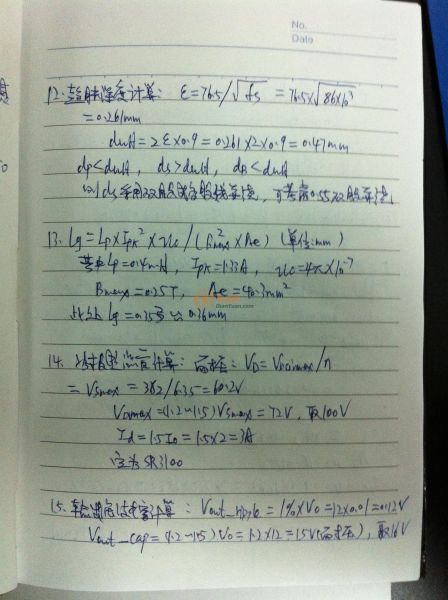 No.
Date
12. 趋肤深度计算: ε=76.5/√fs = 76.5×√86×10³
=0.261mm
dwH=2ε×0.9=0.261×2×0.9=0.47mm
dp<dwH, ds>dwH, dB<dwH
ds采用双股或多股线,可考虑0.55双股
13. Lg=Lp×Ipk²×uc/(Bmax²×Ae) (单位:mm)
其中Lp=0.4mH, Ipk=1.33A, uc=4π×10⁻⁷
Bmax=0.25T, Ae=40.3mm²
Lg=0.35 ≈0.36mm
14. 计算: 耐压: VD=Vbcimax/n
=Vsmax=382/6.35=60.2V
Vdmax=(1.2~1.5)Vsmax=72V, 取100V
Id=1.5Io=1.5×2=3A
定为SR3100
15. 输出滤波电容计算: Vout_ripple=1%×Vo=12×0.01=0.12V
Vout_cap=(1.2~1.5)Vo=1.2×12=15V(耐压), 取16V